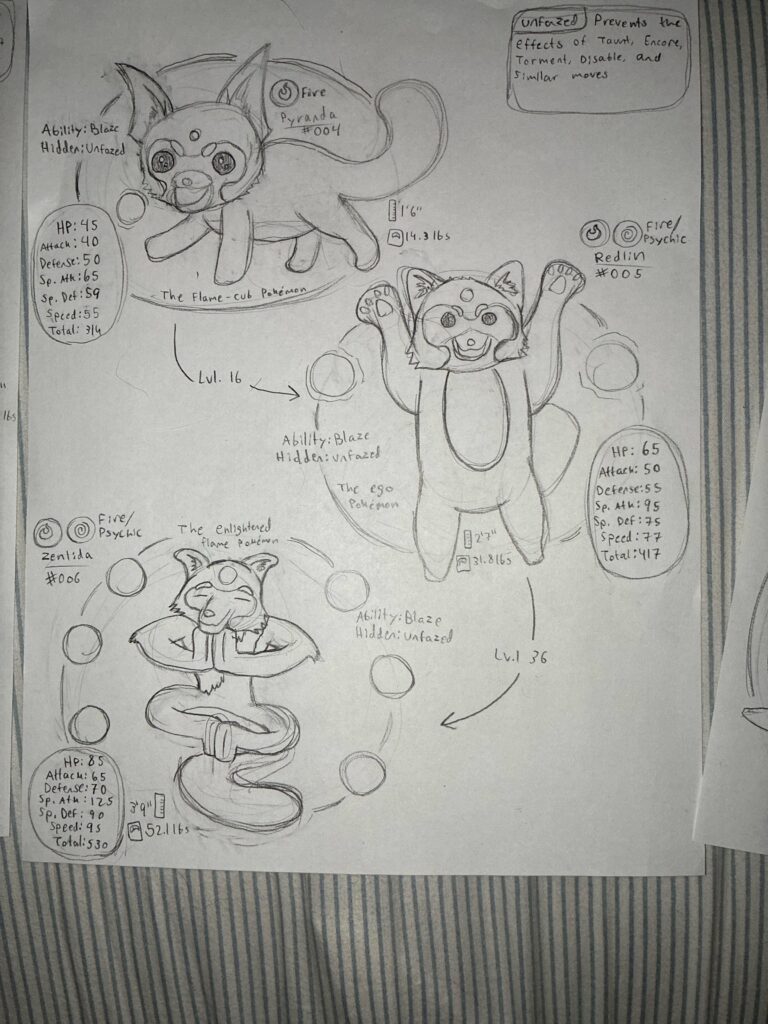 unfazed Prevents the
effects of Taunt, Encore,
Torment, Disable, and
similar moves
Fire
Pyranda
#004
Ability: Blaze
Hidden: Unfazed
HP: 45
Attack: 40
Defense: 50
Sp. Atk: 65
Sp. Def: 59
Speed: 55
Total: 314
1'6"
14.3 lbs
The Flame-cub Pokémon
Lvl. 16
Fire/
Psychic
Redlin
#005
Ability: Blaze
Hidden: unfazed
The ego
Pokémon
HP: 65
Attack: 50
Defense: 55
Sp. Atk: 95
Sp. Def: 75
Speed: 77
Total: 417
2'7"
31.8 lbs
Lvl 36
Fire/
Psychic
Zenlida
#006
The enlightened
flame Pokémon
Ability: Blaze
Hidden: unfazed
HP: 85
Attack: 65
Defense: 70
Sp. Atk: 125
Sp. Def: 90
Speed: 95
Total: 530
3'9"
52.1 lbs
lbs